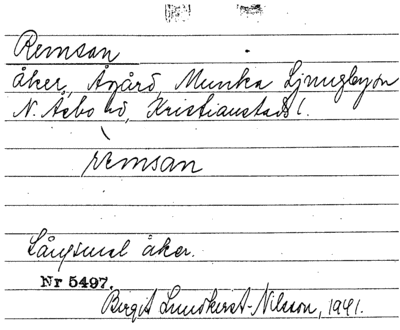 Remsan
åker, Ågård, Munka Ljungby sn
N. Åsbo hd, Kristianstads l.
remsan
Långsmal åker.
Nr 5497.
Birgit Lundkvist-Nilsson, 1941.